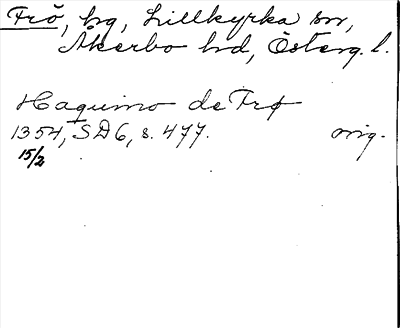 Frö, hg, Lillkyrka sn,
Åkerbo hd, Österg. l.
Haquino de Frø
1354, SD6, s. 477. orig.
15/2